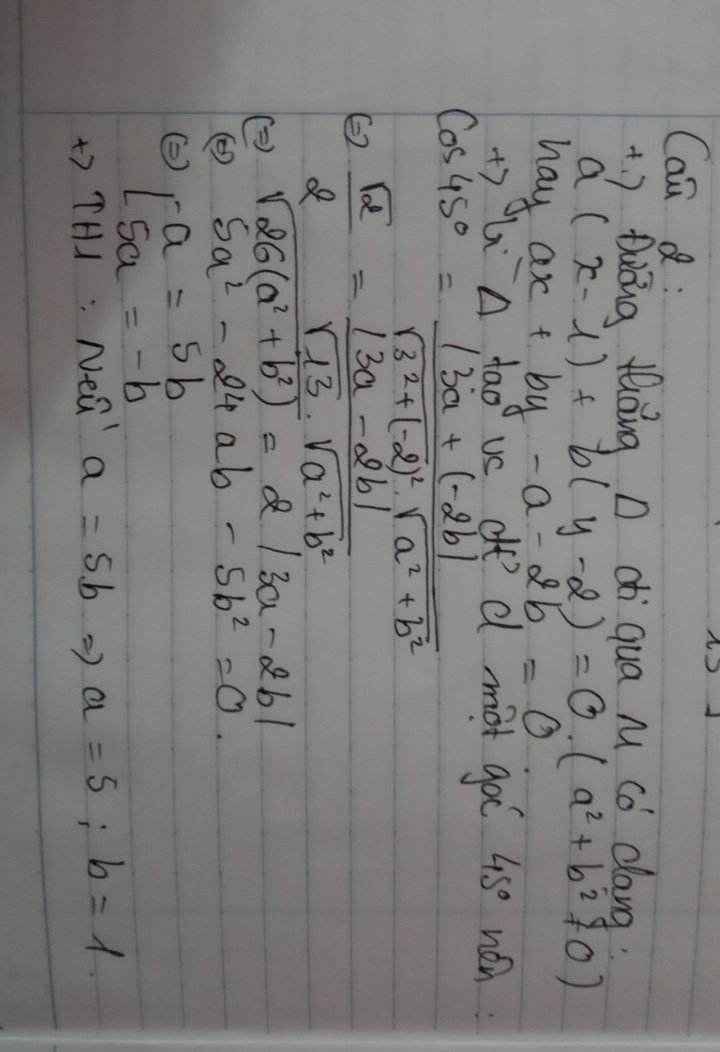 Câu 2:
+) Đường thẳng Δ đi qua M có dạng:
a(x-1) + b(y-2) = 0. (a² + b² ≠ 0)
hay ax + by - a - 2b = 0.
+) Vì Δ tạo vs đt d một góc 45° nên:
Cos 45° = |3a + (-2b)| / √3²+(-2)² . √a² + b²
(=) √2 / 2 = |3a - 2b| / √13 . √a² + b²
(=) √26(a² + b²) = 2 |3a - 2b|
(=) 5a² - 24ab - 5b² = 0.
(=) [ a = 5b
5a = -b
+) TH1: Nếu a = 5b => a = 5; b = 1.